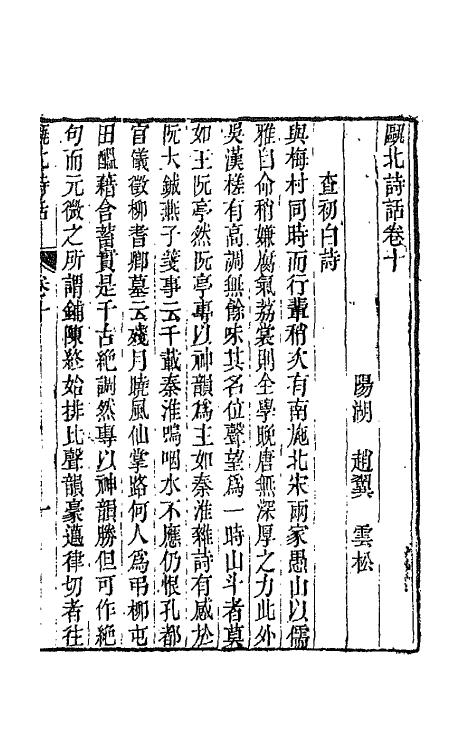 甌北詩話卷十
陽湖　趙翼　雲松
查初白詩
與梅村同時而行輩稍次有南施北宋兩家愚山以儒
雅自命稍嫌腐氣荔裳則全學晚唐無深厚之力此外
吳漢槎有高調無餘味其名位聲望為一時山斗者莫
如王阮亭然阮亭專以神韻為主如秦淮雜詩有感於
阮大鋮燕子箋事云千載秦淮嗚咽水不應仍恨孔都
官儀徵柳耆卿墓云殘月曉風仙掌路何人為弔柳屯
田醞藉含蓄實是千古絕調然專以神韻勝但可作絕
句而元微之所謂鋪陳終始排比聲韻豪邁律切者往
甌北詩話　卷十　一